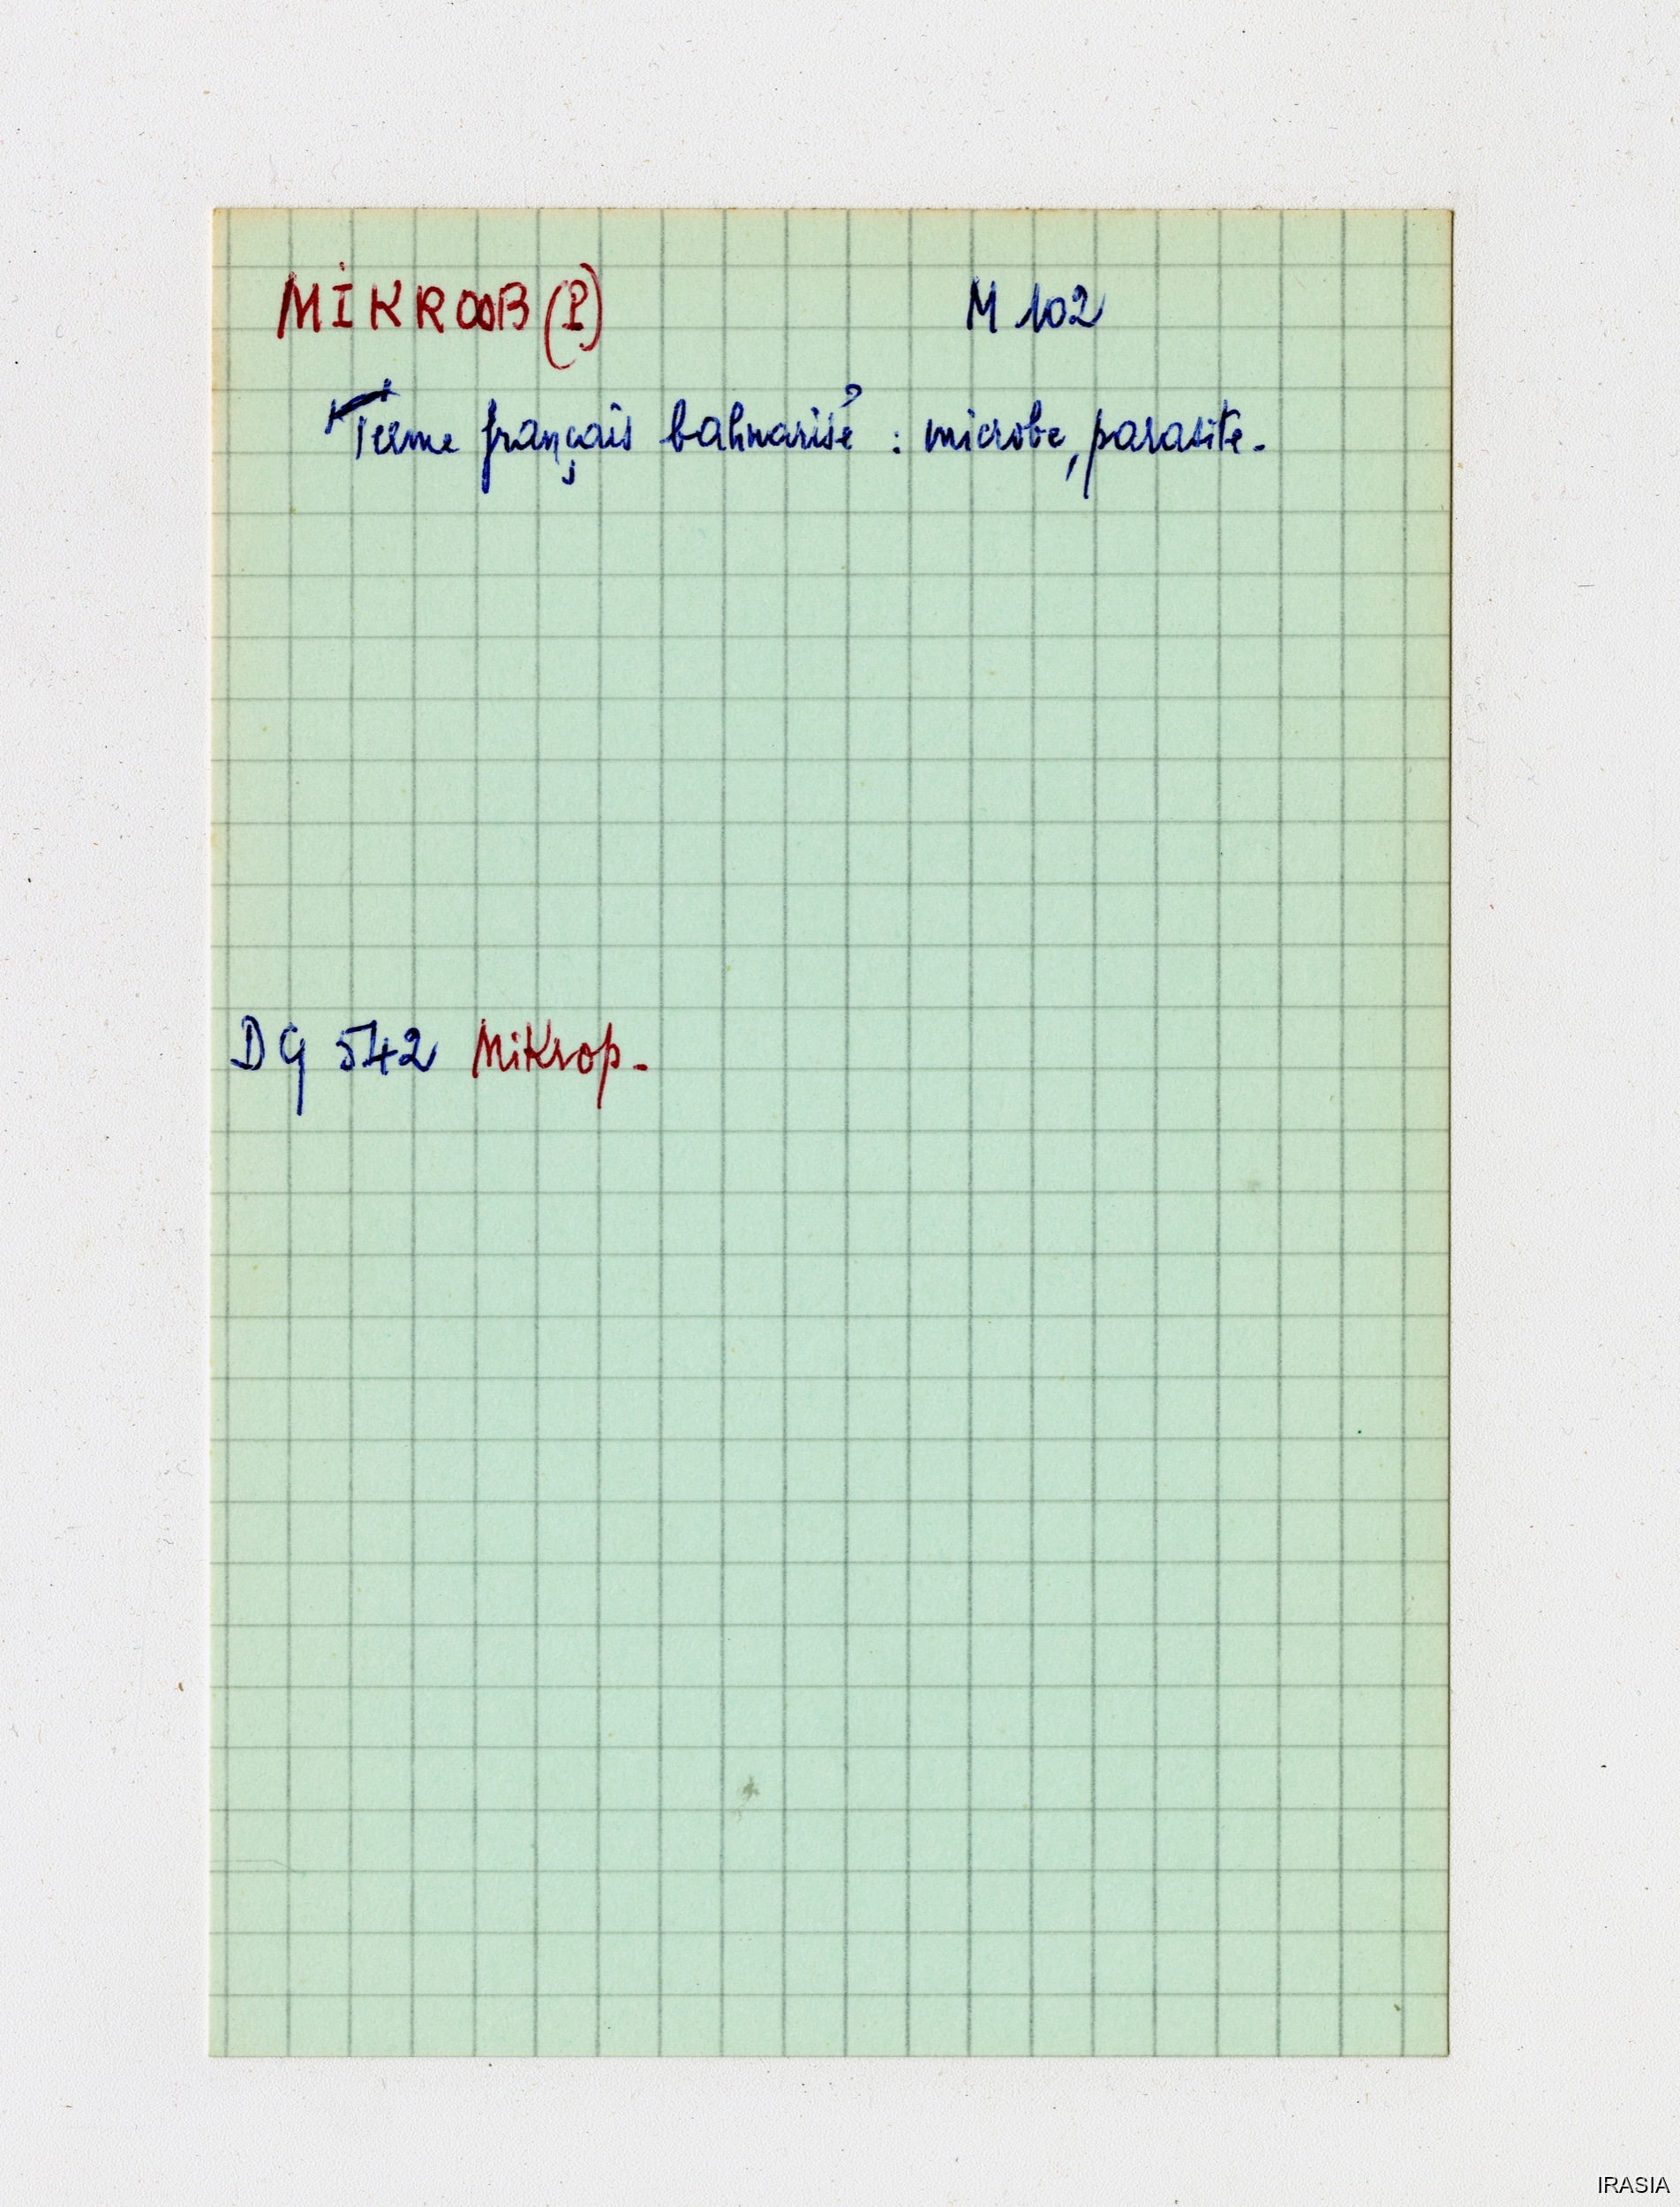 MIKROOB (P) M 102
Terme français bahnarisé : microbe, parasite.
DG 542 Mikrop.
IRASIA